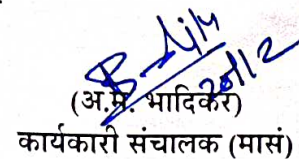 (अ.प्र. भादिकर)
कार्यकारी संचालक (मासं)